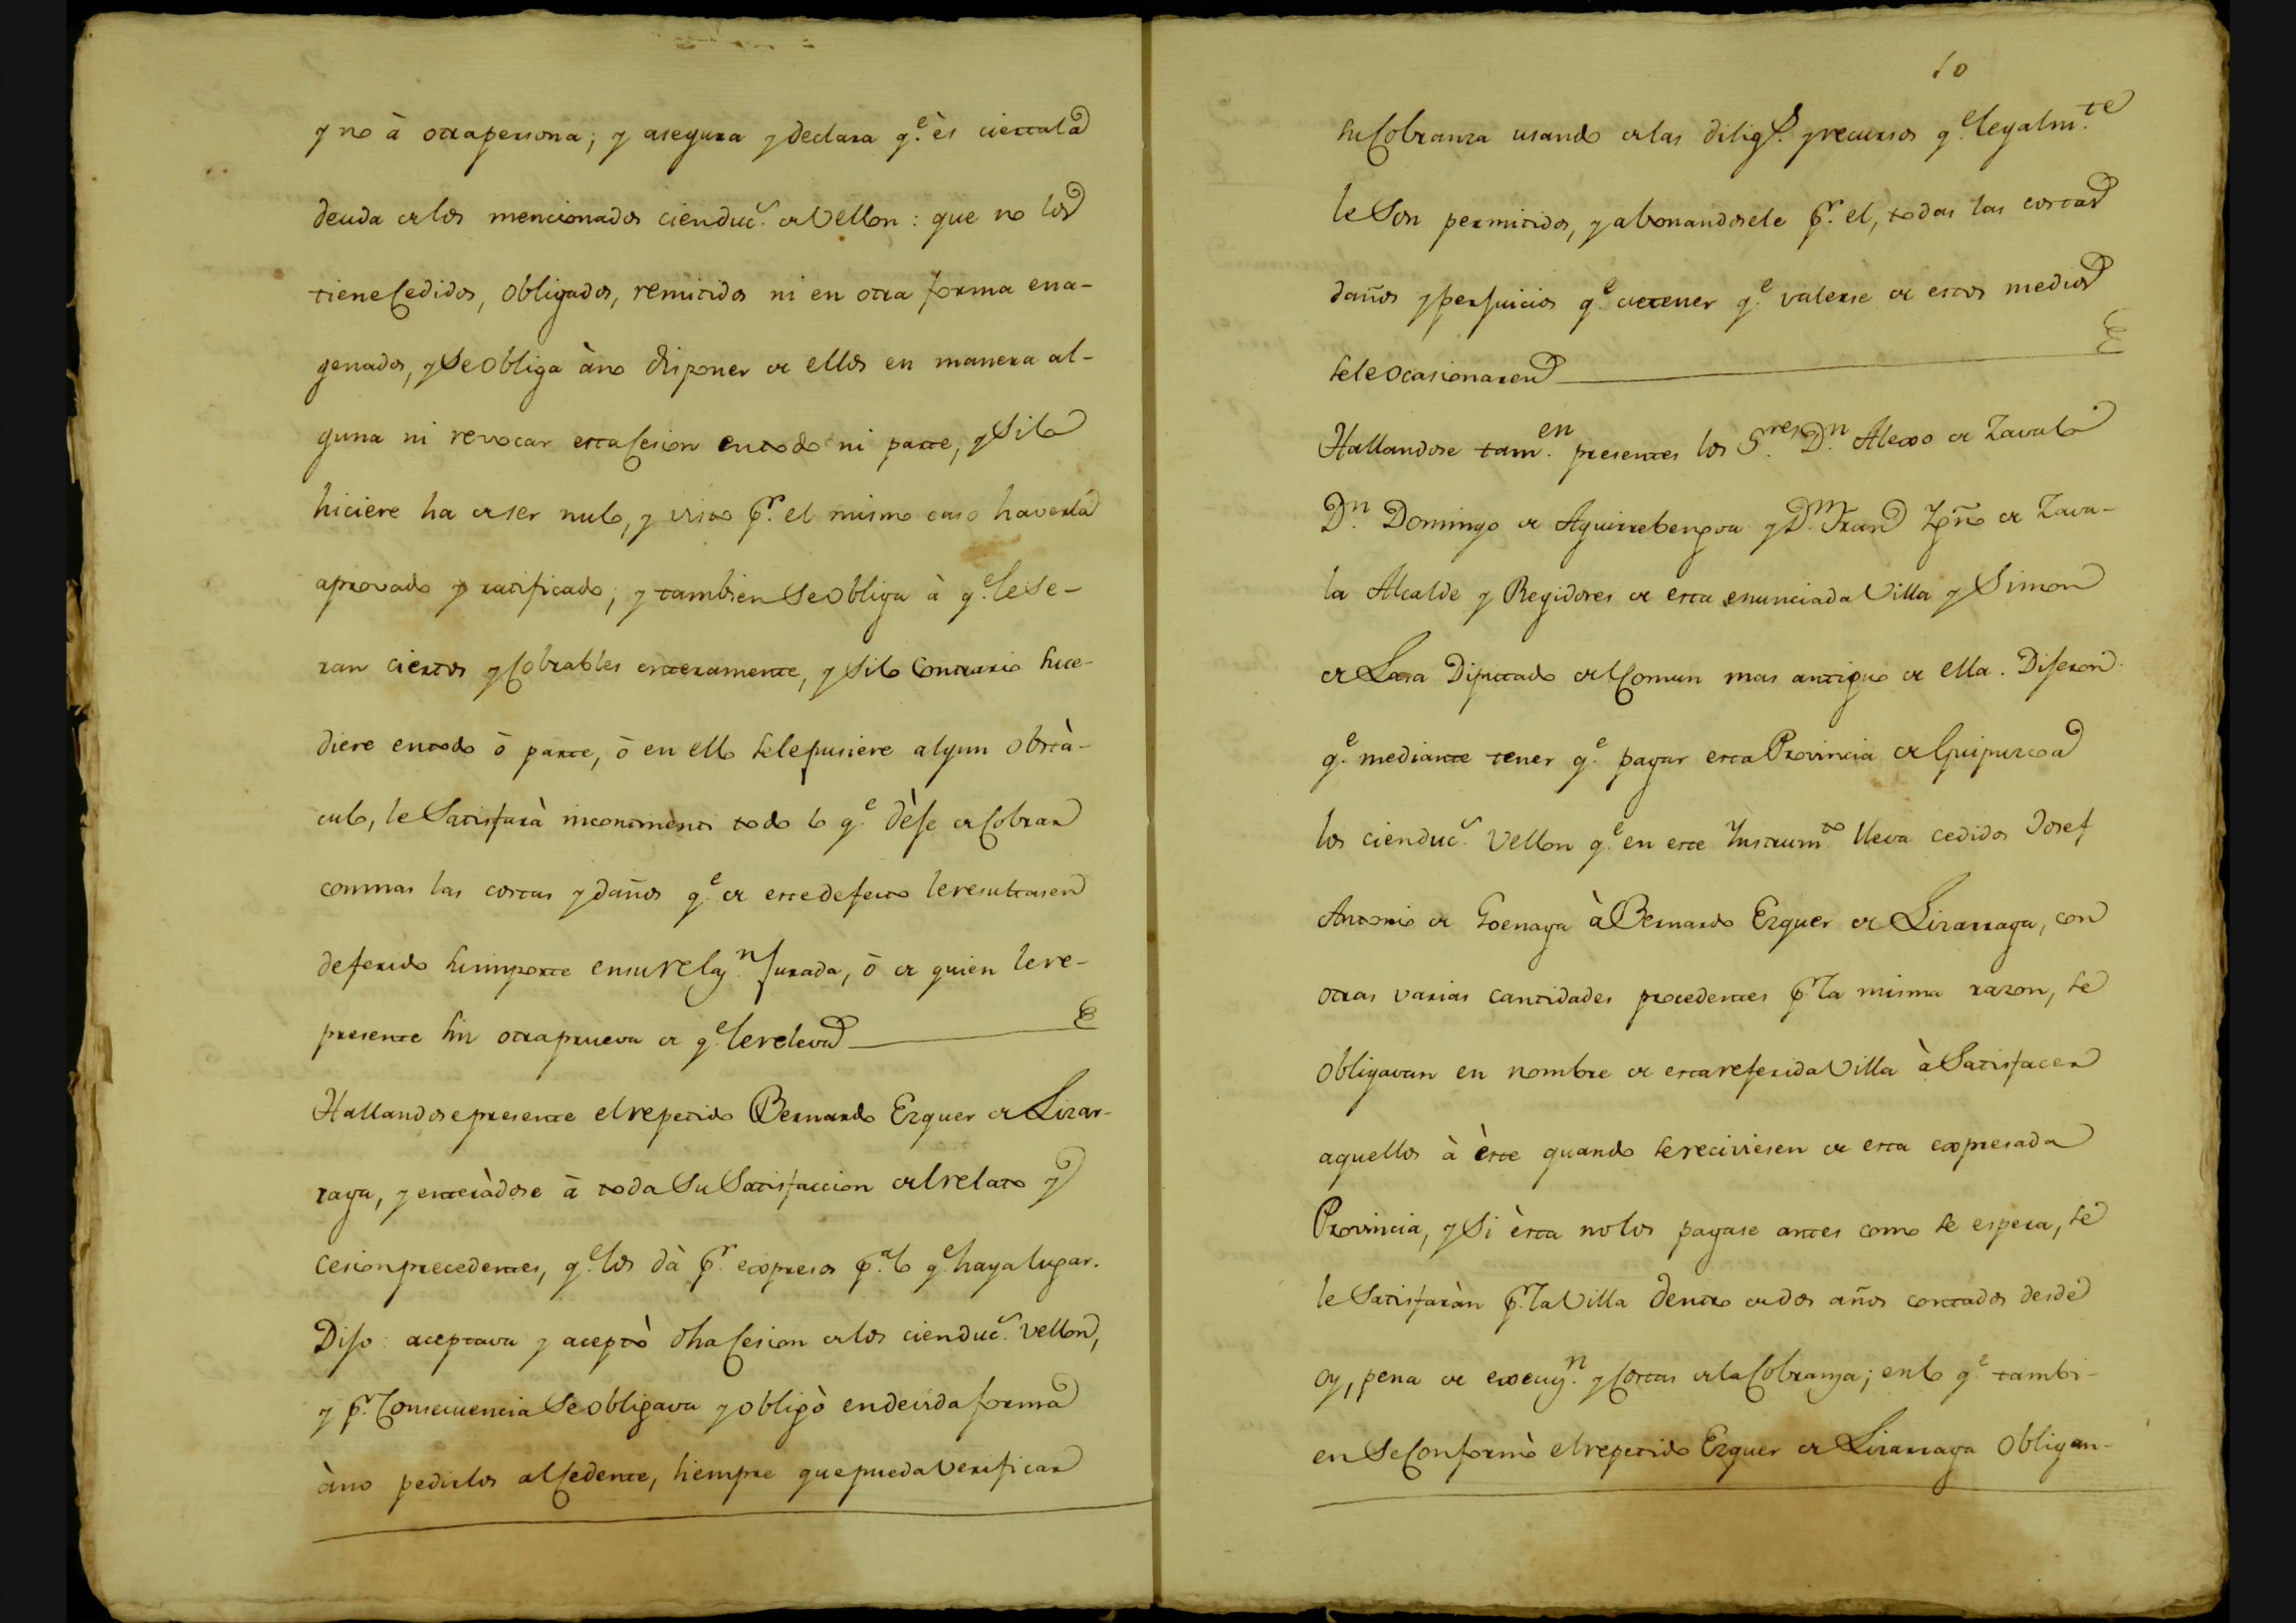 y no à otra persona; y asegura y declara q.e ès cierta la
deuda de los mencionados cien duc.s de Vellon: que no los
tiene Cedidos, obligados, remitidos ni en otra forma ena-
genados, y Se obliga à no disponer de ellos en manera al-
guna ni revocar esta Cesion en todo ni parte, y Si lo
hiciere ha de ser nulo, y visto p.r el mismo caso haverla
aprovado y ratificado; y tambien Se obliga à q.e le Se-
ran ciertos y Cobrables enteramente, y Si lo Contrario suce-
diere en todo ō parte, ō en ello se le pusiere algun obstà-
culo, le Satisfarà incontinènti todo lo q.e dèje de Cobrar
con mas las costas y daños q.e de este defecto le resultasen
deferido su importe en su relaz.n jurada, ō de quien le re-
presente sin otra prueva de q.e le releva
Hallandose presente el repetido Bernardo Ezquer de Lizar-
raga, y enteràdose à toda Su Satisfaccion del relato y
cesion precedentes, q.e los dà p.r expresos p.a lo q.e haya lugar.
Dijo: aceptava y aceptò dha Cesion de los cien duc.s vellon,
y p.r Consecuencia Se obligava y obligò en devida forma
à no pedirlos al Cedente, siempre que pueda Verificar
10
su Cobranza usando de las dilig.s y recursos q.e legalm.te
le Son permitidos, y abonandosele p.r el, todas las costas
daños y perjuicios q.e de tener q.e valerse de estos medios
se le ocasionaren
Hallandose tam.en presentes los S.res D.n Alexo de Zavala
D.n Domingo de Aguirrebengoa y D.n Fran.co Ign.o de Zava-
la Alcalde y Regidores de esta enunciada Villa y Simon
de Lasa Diputado del Comun mas antiguo de ella. Dijeron:
q.e mediante tener q.e pagar esta Provincia de Guipuzcoa
los cien duc.s Vellon q.e en este Instrum.to lleva cedidos Josef
Antonio de Goenaga à Bernardo Ezquer de Lizarraga, con
otras varias cantidades procedentes p.r la misma razon, se
obligavan en nombre de esta referida Villa à Satisfacer
aquellos à èste quando se reciviesen de esta expresada
Provincia, y Si èsta no los pagase antes como se espera, se
le Satisfaràn p.r la Villa dentro de dos años contados desde
oy, pena de execuz.n y Costas de la Cobranza; en lo q.e tambi-
en Se Conformò el repetido Ezquer de Lizarraga obligan-